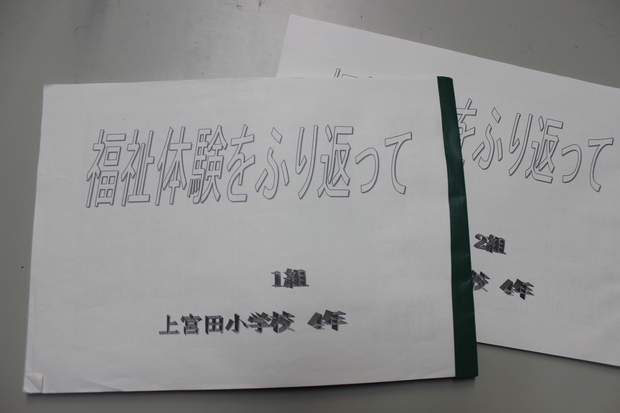 福祉体験をふり返って
1組
上宮田小学校 4年
をふり返って
2組
校 4年